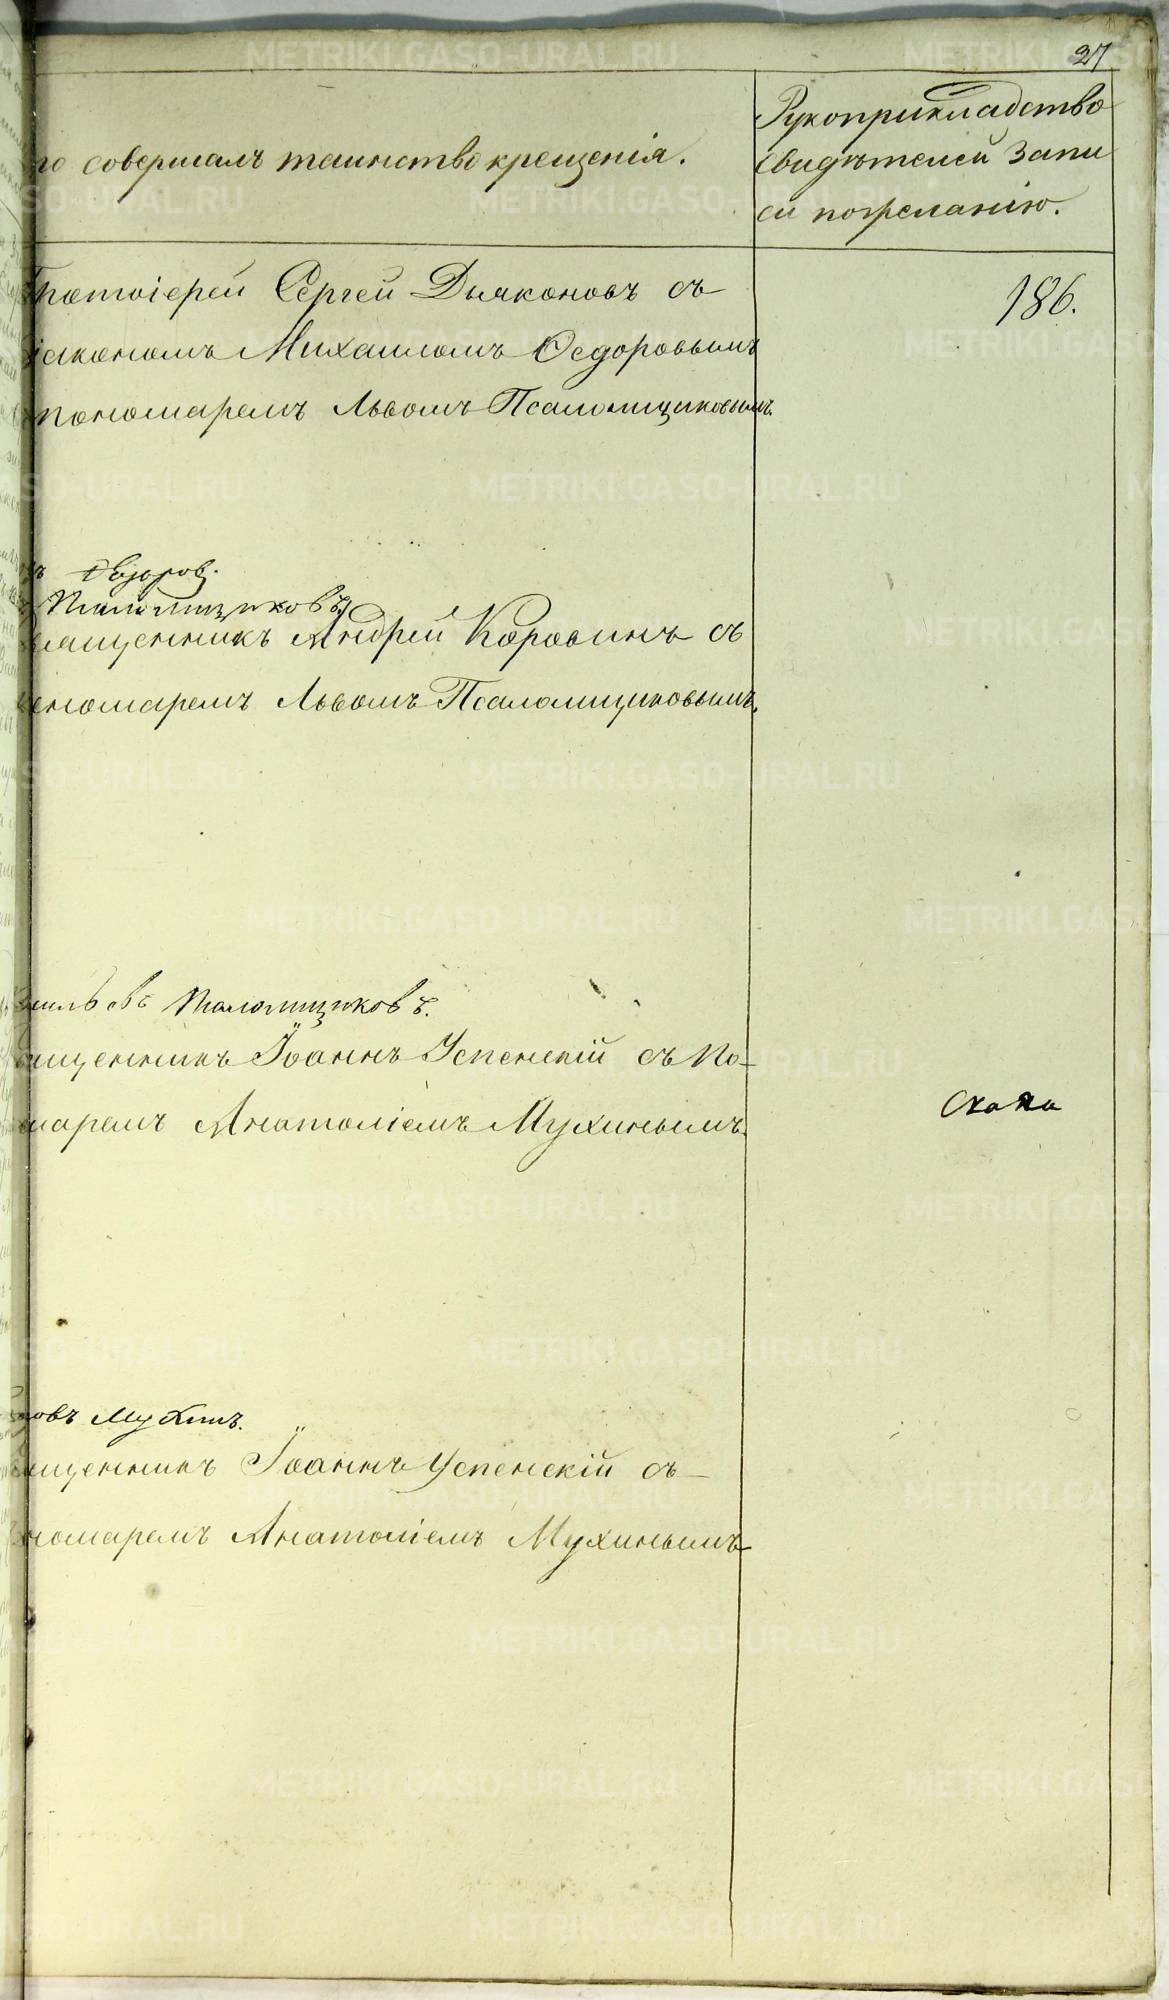 27
то совершалъ таинство крещенія.
Рукоприкладство
свидѣтелей запи
си по желанію.
Протоіерей Сергей Дьяконовъ съ
діакономъ Михаиломъ Ѳедоровымъ
пономаремъ Львомъ Псаломщиковымъ.
186.
Ѳедоров.
Псаломщиковъ
священникъ Андрей Коровинъ съ
пономаремъ Львомъ Псаломщиковымъ.
Псаломщиковъ.
священникъ Іоаннъ Успенскій съ по-
номаремъ Анатоліемъ Мухинымъ.
Мухинъ.
священникъ Іоаннъ Успенскій съ
пономаремъ Анатоліемъ Мухинымъ
METRIKI.GASO-URAL.RU